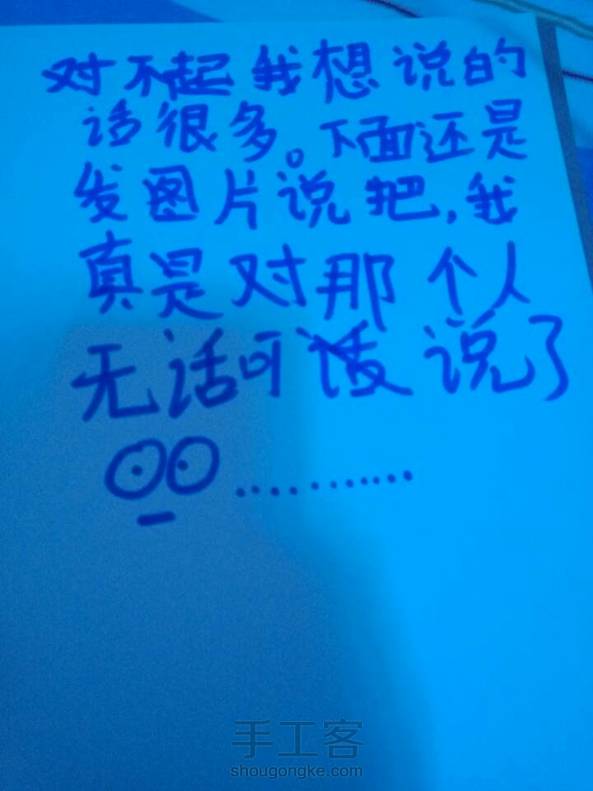 对不起我想说的
话很多。下面还是
发图片说把,我
真是对那个人
无话可说了
..........
手工客
shougongke.com